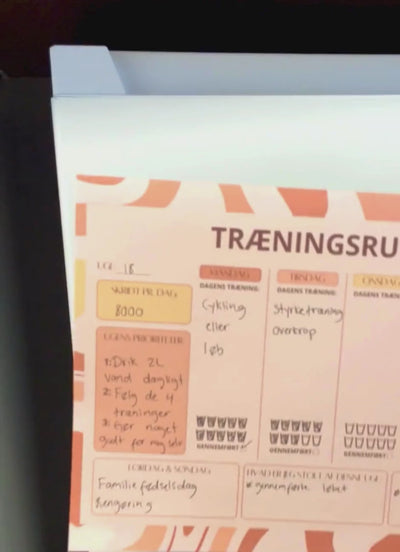 TRÆNINGSRU
UGE 18
SKRIDT PR. DAG
8000
UGENS PRIORITETER
1: Drik 2L
vand dagligt
2: Følg de 4
træninger
3: Gør noget
godt for mig selv
MANDAG
DAGENS TRÆNING:
Cykling
eller
løb
GENNEMFØRT
TIRSDAG
DAGENS TRÆNING:
Styrketræning
overkrop
GENNEMFØRT
ONSDAG
DAGENS TRÆN
GENNEMFØRT
LØRDAG & SØNDAG
Familiefødselsdag
Rengøring
HVAD ER JEG STOLT AF DENNE UGE
# gennemførte løbet